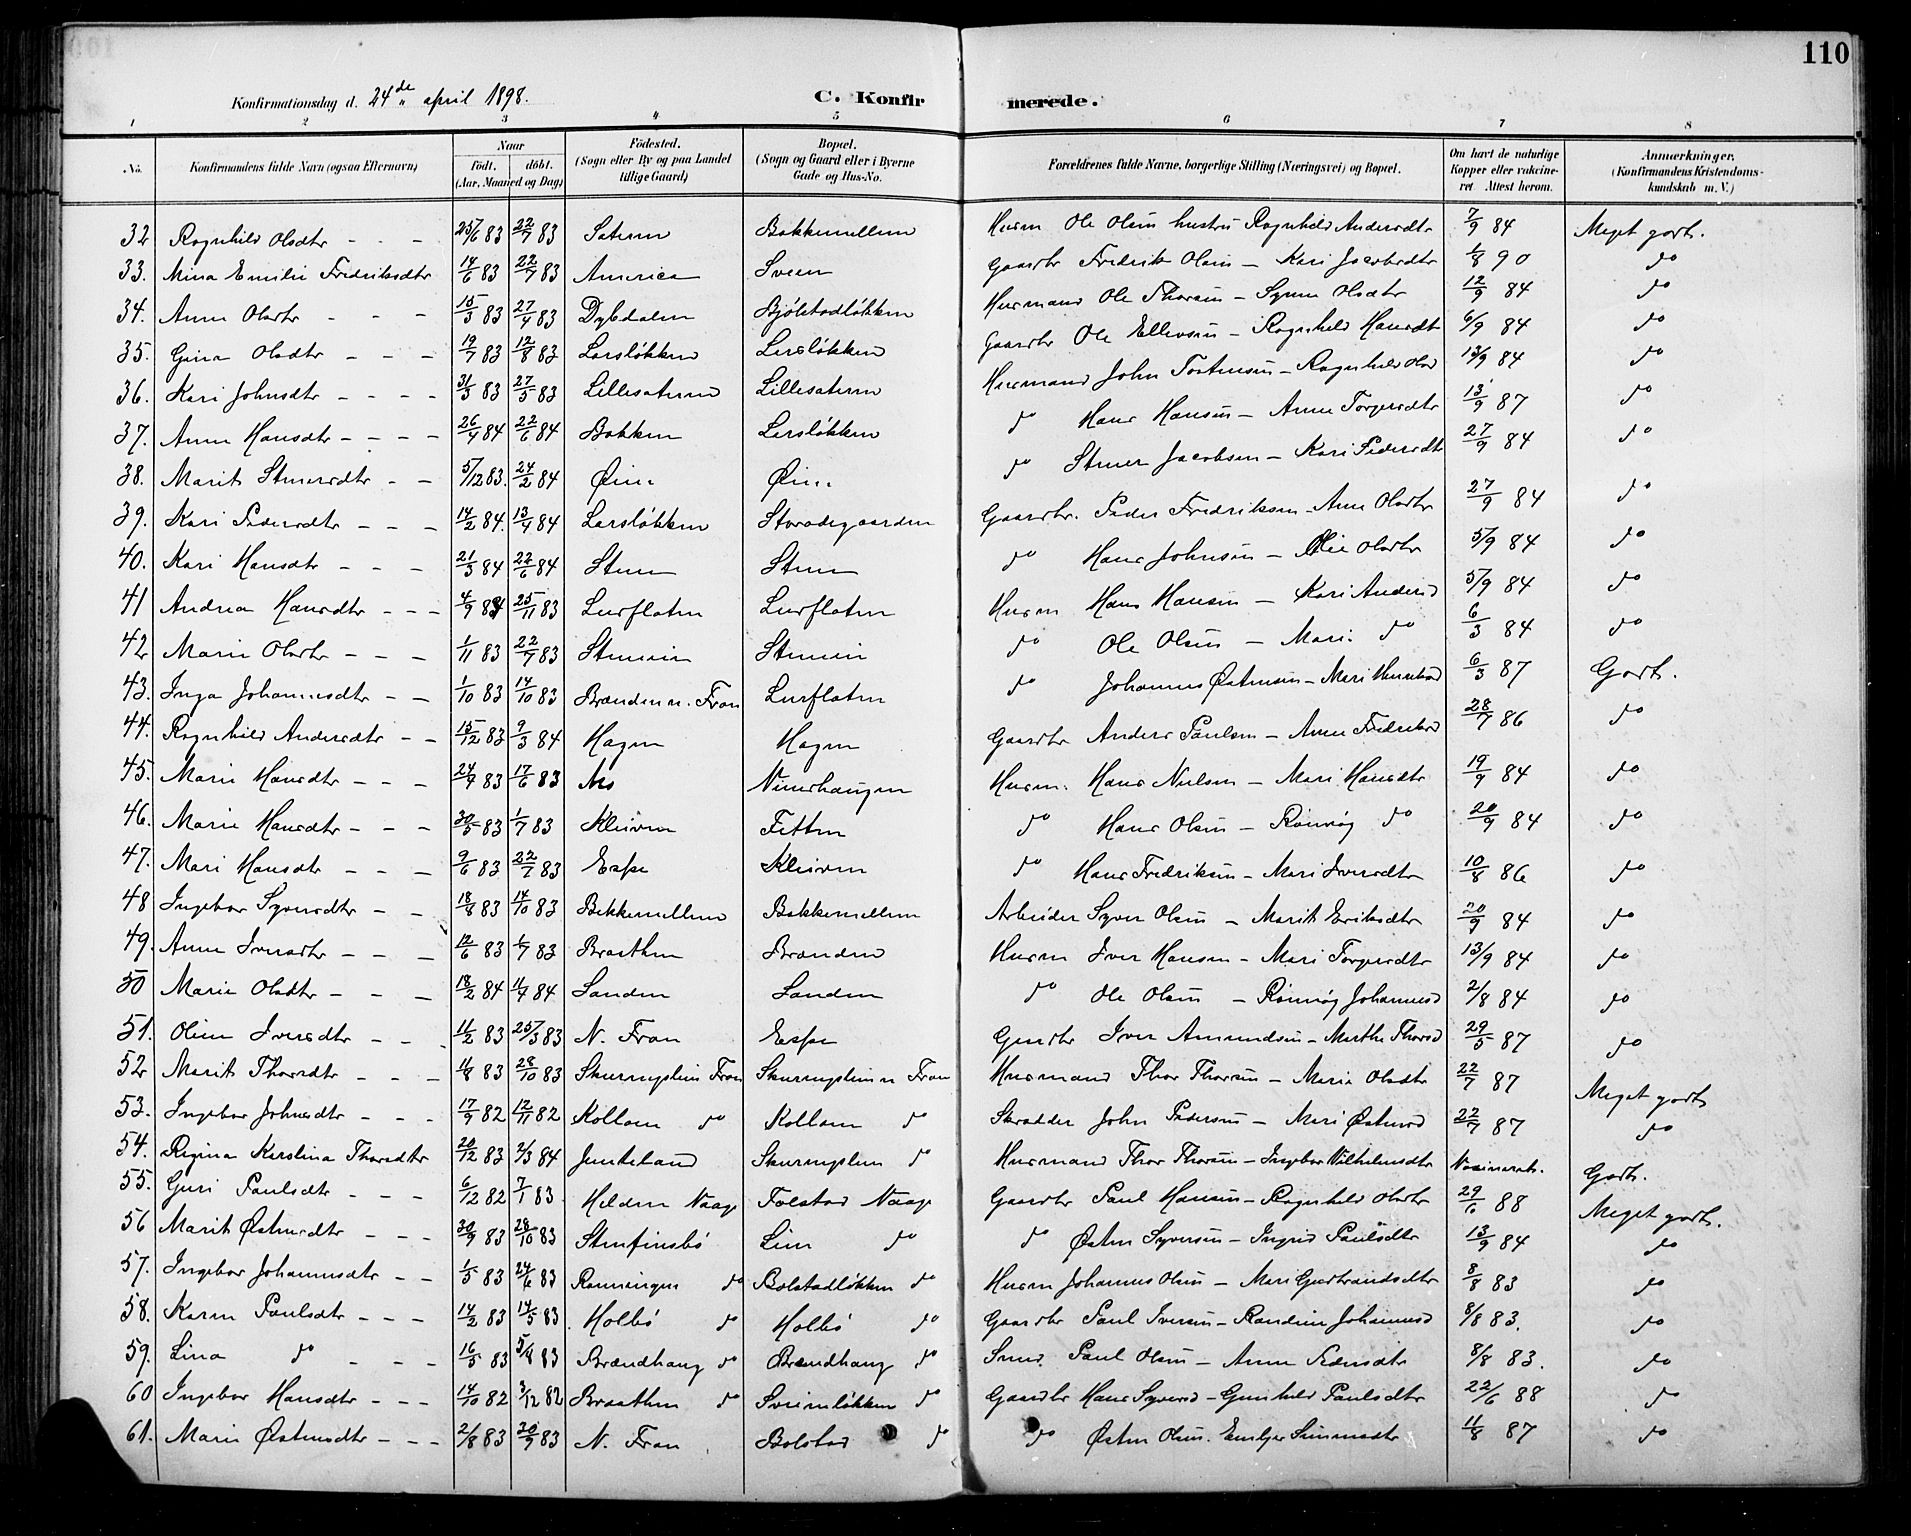 110
Konfirmationsdag d. 24de april 1898. C. Konfirmerede.
1 2 3 4 5 6 7 8
No. Konfirmandens fulde Navn (ogsaa Efternavn) Naar födt. döbt. (Aar, Maaned og Dag) Födested. (Sogn eller By og paa Landet tillige Gaard) Bopæl. (Sogn og Gaard eller i Byerne Gade og Hus-No. Forældrenes fulde Navne, borgerlige Stilling (Næringsvei) og Bopæl. Om havt de naturlige Kopper eller vakcineret Attest herom. Anmærkninger. (Konfirmandens Kristendomskundskab m. V.)
32 Ragnhild Olsdtr - - - 25/6 83 22/7 83 Sæteren Bakkemellem Husm Ole Olsen hustru Ragnhild Andersdtr 7/9 84 Meget godt.
33. Mina Emilie Fredriksdtr 14/6 83 22/7 83 America Sveen Gaardbr Fredrik Olsen - Kari Jacobsdtr 1/8 90 do
34. Anne Olsdtr - - - 15/3 83 27/4 83 Dybdalen Bjølstadløkken Husmand Ole Thorsen - Synne Olsdtr 12/9 84 do
35. Gina Olsdtr - - - 19/7 83 12/8 83 Larsløkken Larsløkken Gaardbr Ole Ellevsen - Ragnhild Hansdt 6/9 84 do
36. Kari Johnsdtr - - - - 31/3 83 27/5 83 Lillesæteren Lillesæteren Husmand John Tostensen - Ragnhild Olsd 13/9 84 do
37. Anne Hansdtr - - - - 26/4 84 22/6 84 Bakken Larsløkken do Hans Hansen - Anne Torgersdtr 13/9 87 do
38. Marit Steinersdtr - - 5/12 83. 24/2 84 Øien Øien do Stener Jacobsen - Kari Pedersdt 27/9 84 do
39. Kari Pedersdtr - - - 14/2 84. 13/4 84 Larsløkken Storødegaarden Gaardbr. Peder Fredriksen - Anne Olsdtr 27/9 84 do
40. Kari Hansdtr - - - 21/3 84 22/6 84 Steen Steen do Hans Johnsen - Olie Olsdtr 5/9 84 do
41 Andrea Hansdtr - - - 4/9 84 25/11 83 Lurfloten Lurfloten Husm Hans Hansen - Kari Andersd 5/9 84 do
42 Marie Olsdtr - - - 1/11 83 22/7 83 Steneien Steneien do Ole Olsen - Mari do 6/3 84 do
43. Inga Johannesdtr - - 1/10 83 14/10 83 Brænden n. Fron Lurfloten do Johannes Østensen - Mari 6/3 87 Godt.
44. Ragnhild Andersdtr - - 15/12 83 9/3 84 Hagen Hagen Gaardbr Anders Paulsen - Anne Fredriksd 28/7 86 do
45. Marie Hansdtr - - - 24/4 83 17/6 83 Nes Husm. Hans Nielsen - Mari Hansdtr 19/9 84 do
46. Marie Hansdtr - - - 30/5 83 1/7 83 Kleiven Fetten do Hans Olsen - Rønnøg do 20/9 84 do
47. Mari Hansdtr - - - 9/6 83 22/7 83 Espe Kleiven do Hans Fredriksen - Mari Iversdtr 10/8 86 do
48 Ingebor Syversdtr - - 18/8 83 14/10 83 Bakkemellem Bakkemellem Arbeider Syver Olsen - Marit Eriksdtr 20/9 84 do
49. Anne Iversdtr - - - 12/6 83 1/7 83 Braathen Brænden Husm Iver Hansen - Mari Torgersdtr 13/9 84 do
50 Marie Olsdtr - - - 18/2 84 11/4 84 Sanden Sanden do Ole Olsen - Rønnøg Johannesd 2/8 84 do
51. Oline Iversdtr - - . 11/2 83 25/3 83 N. Fron Espe Gaardbr Iver Amundsen - Marthe Thorsd 29/5 87 do
52 Marit Thorsdtr - - - 11/8 83 28/10 83 Skurruplien Fron Skurruplien n Fron Husmand Thor Thorsen - Marie Olsdtr 22/7 87 Meget godt
53. Ingebor Johnsdtr - - - 17/9 82 12/11 82 Kollom do Kollom do Skrædder John Pedersen - Mari Østensd 22/7 87 do
54. Regina Karolina Thorsdtr 20/12 83 2/3 84 Skurruplien do Husmand Thor Thorsen - Ingebor Vilhelmsdtr Vaxineret. Godt.
55. Guri Paulsdtr - - - 6/12 82 7/1 83 Hilden Vaage Tolstad Vaage Gaardbr Paul Hansen - Ragnhild Olsdtr 29/6 88 Meget godt.
56 Marit Østensdtr - - - 30/9 83 28/10 83 Stenfinsbø Lien do do Østen Syversen - Ingrid Paulsdtr 13/9 84 do
57. Ingebor Johannesdtr - - 1/5 83 24/6 83 Rønningen do Bolstadløkken do Husm Johannes Olsen - Mari Gudbrandsdtr 8/8 83 do
58. Karen Paulsdtr - - - 14/2 83 14/5 83 Holbø do Holbø do Gaardbr Paul Iversen - Randine Johannesd 8/8 83. do
59. Lina do - - - 16/5 83 5/8 83 Brændhaug do Brændhaug do Smed Paul Olsen - Anne Pedersdtr 8/8 83. do
60 Ingebor Hansdtr - - - 14/10 82 3/12 82 Braathen do Sveinløkken do Gaardbr Hans Syversd - Gunhild Paulsdtr 22/6 88 do
61. Marie Østensdtr - - - 2/8 83 30/9 83 N. Fron Bolstad do do Østen Olsen. Simensdtr 11/8 87 do